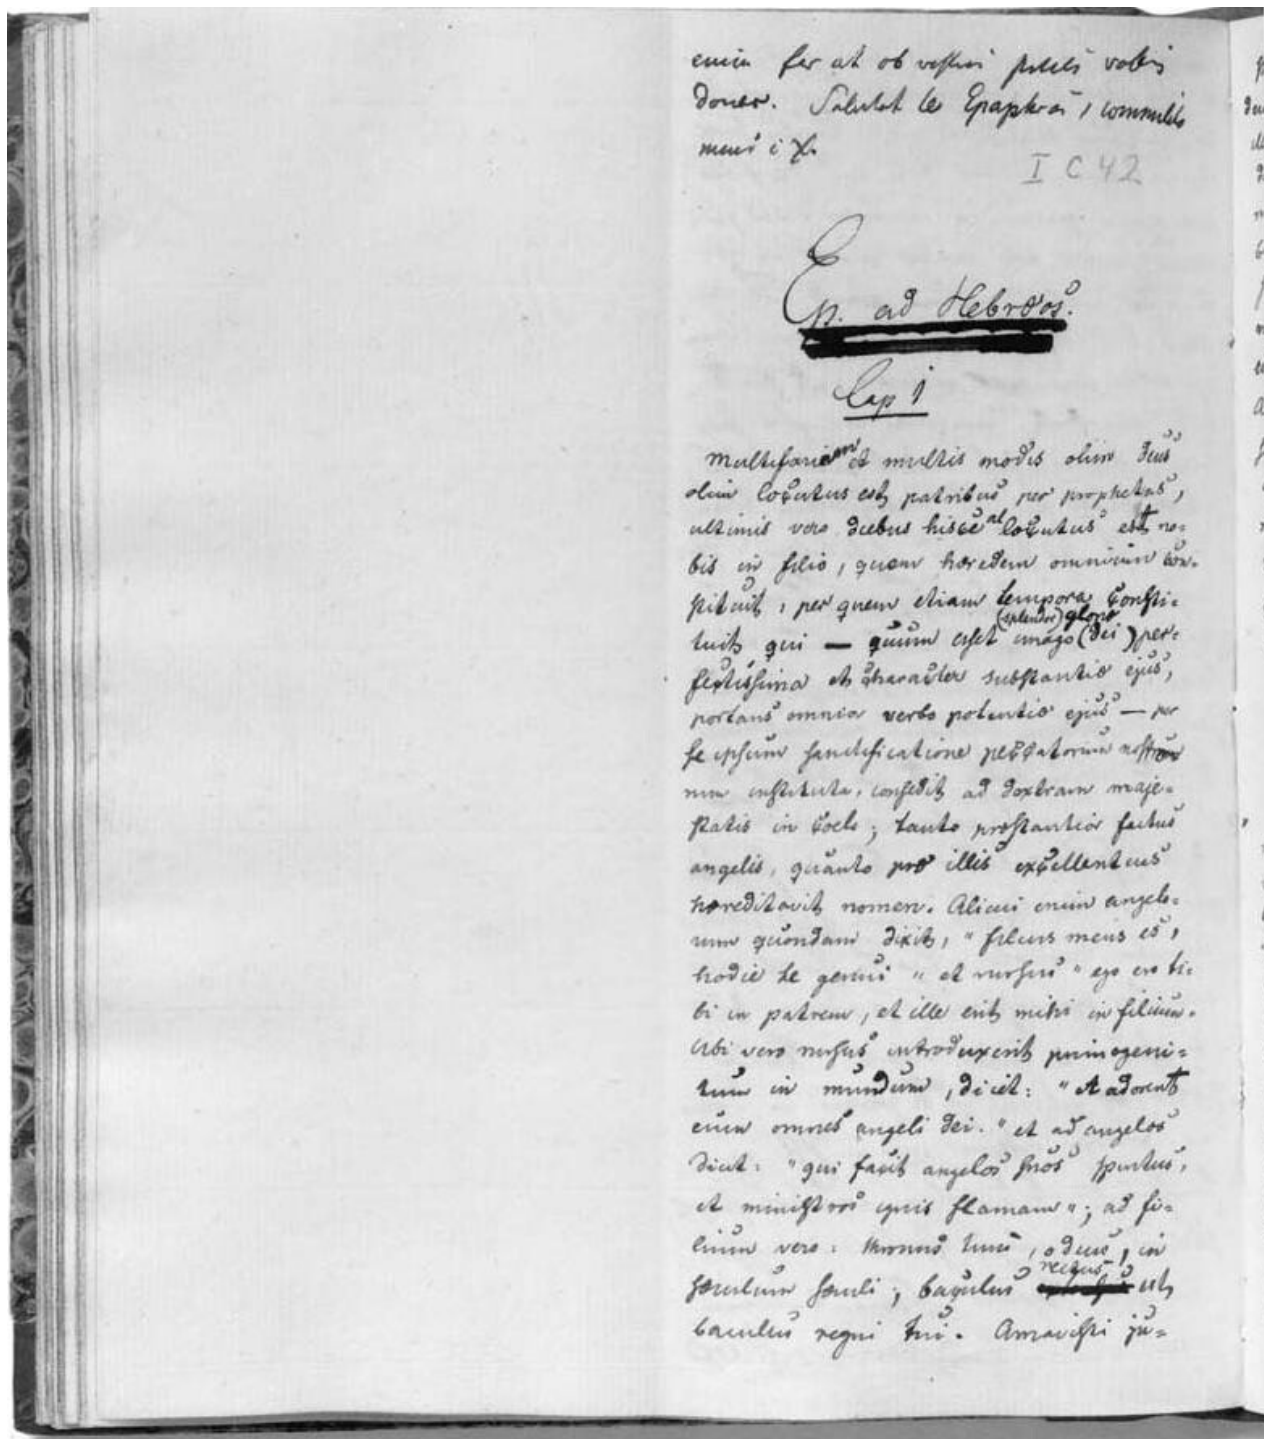 enim fer ut ob vestri preces vobis
doner. Salutat te Epaphras, commilito
meus i X.
I C 42
Ep. ad Hebræos.
Cap 1
Multifariam et multis modis olim deus
olim locutus est patribus per prophetas,
ultimis vero diebus hisce locutus est no=
bis in filio, quem hæredem omnium con=
stituit, per quem etiam tempora consti=
(splendor) gloriæ
tuit, qui — quum esset imago (dei) per=
fectissima et character substantiæ ejus,
portans omnia verbo potentiæ ejus — per
se ipsum sanctificatione peccatorum
rum instituta, consedit ad dextram maje=
statis in coelo; tanto præstantior factus
angelis, quanto præ illis excellentius
hæreditavit nomen. Alicui enim angelo=
rum quondam dixit, "filius meus es,
hodie te genui" et rursus "ego ero ti=
bi in patrem, et ille erit mihi in filium.
Ubi vero rursus introduxerit primogeni=
tum in mundum, dicit: "et adorent
eum omnes angeli dei." et ad angelos
dicit: "qui facit angelos suos spiritus,
et ministros ignis flamam"; ad fi=
lium vero: thronus tuus, o deus, in
rectus
sæculum sæculi; baculus est
baculus regni tui. Amavisti ju=